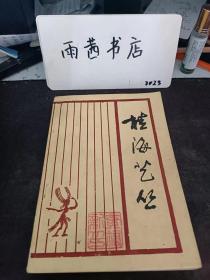 雨茜书店
2023
桂海艺丛